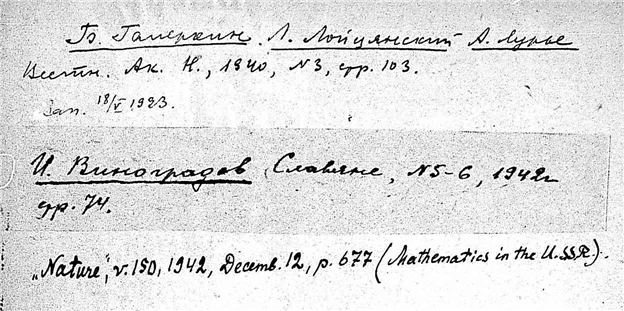 Б. Галеркин. Л. Лойцянский А. Лурье
Вестн. Ак. Н., 1940, N3, стр. 103.
Зап. 18/V 1923.
И. Виноградов Славяне, N5-6, 1942г
стр. 74.
„Nature", v. 150, 1942, Decemb. 12, p. 677 (Mathematics in the U.SSR.).